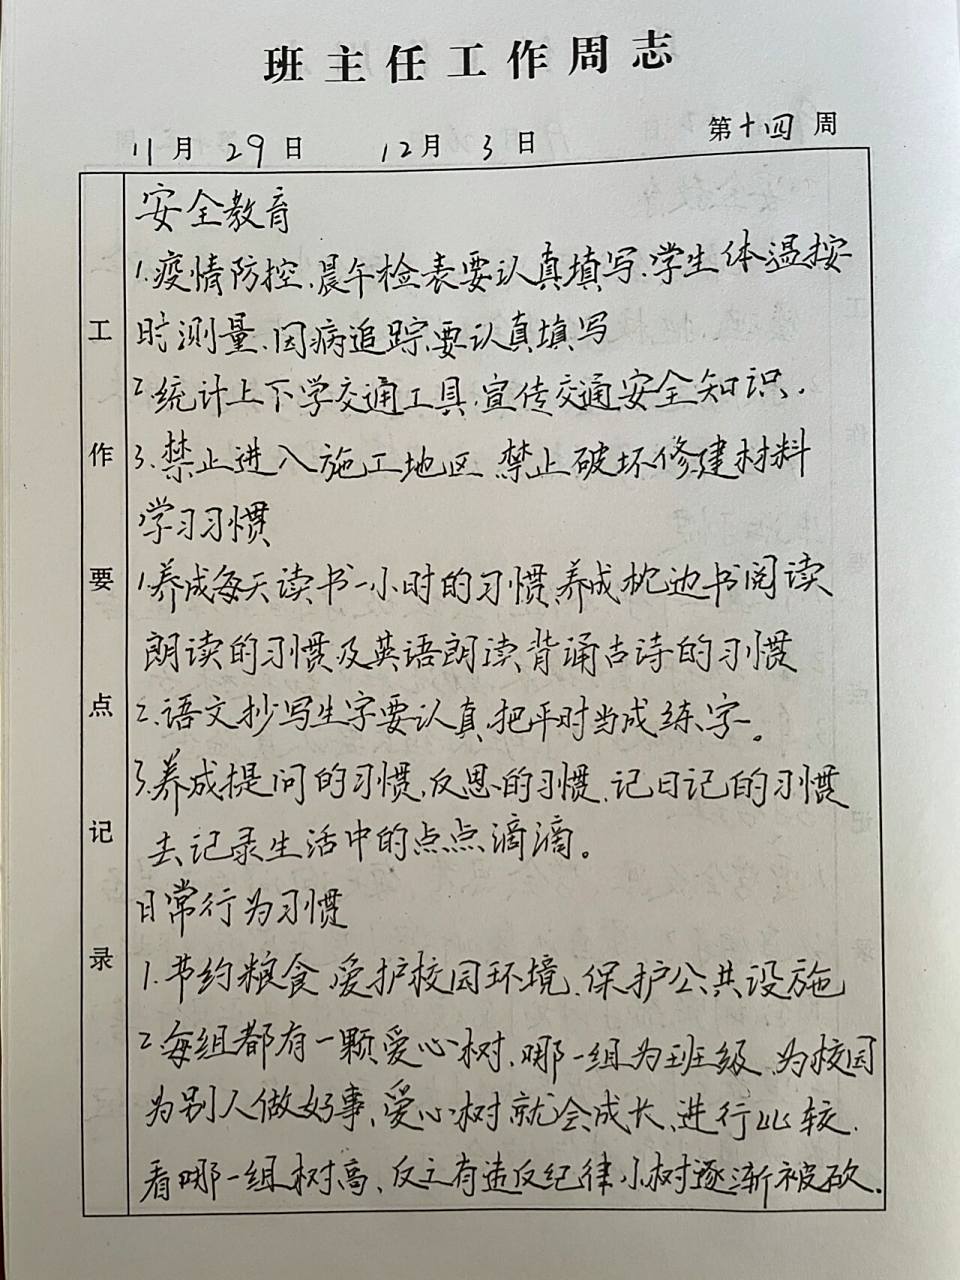 班主任工作周志
11月 29日 12月 3日 第十四周
工作要点记录
安全教育
1.疫情防控、晨午检表要认真填写、学生体温按
时测量、因病追踪、要认真填写
2.统计上下学交通工具、宣传交通安全知识.
3.禁止进入施工地区、禁止破坏修建材料
学习习惯
1.养成每天读书一小时的习惯、养成枕边书阅读
朗读的习惯及英语朗读、背诵古诗的习惯
2.语文抄写生字要认真、把平时当成练字。
3.养成提问的习惯、反思的习惯、记日记的习惯
去记录生活中的点点滴滴。
日常行为习惯
1.节约粮食、爱护校园环境、保护公共设施
2.每组都有一颗爱心树、哪一组为班级、为校园
为别人做好事、爱心树就会成长、进行比较.
看哪一组树高、反之有违反纪律小树逐渐被砍.